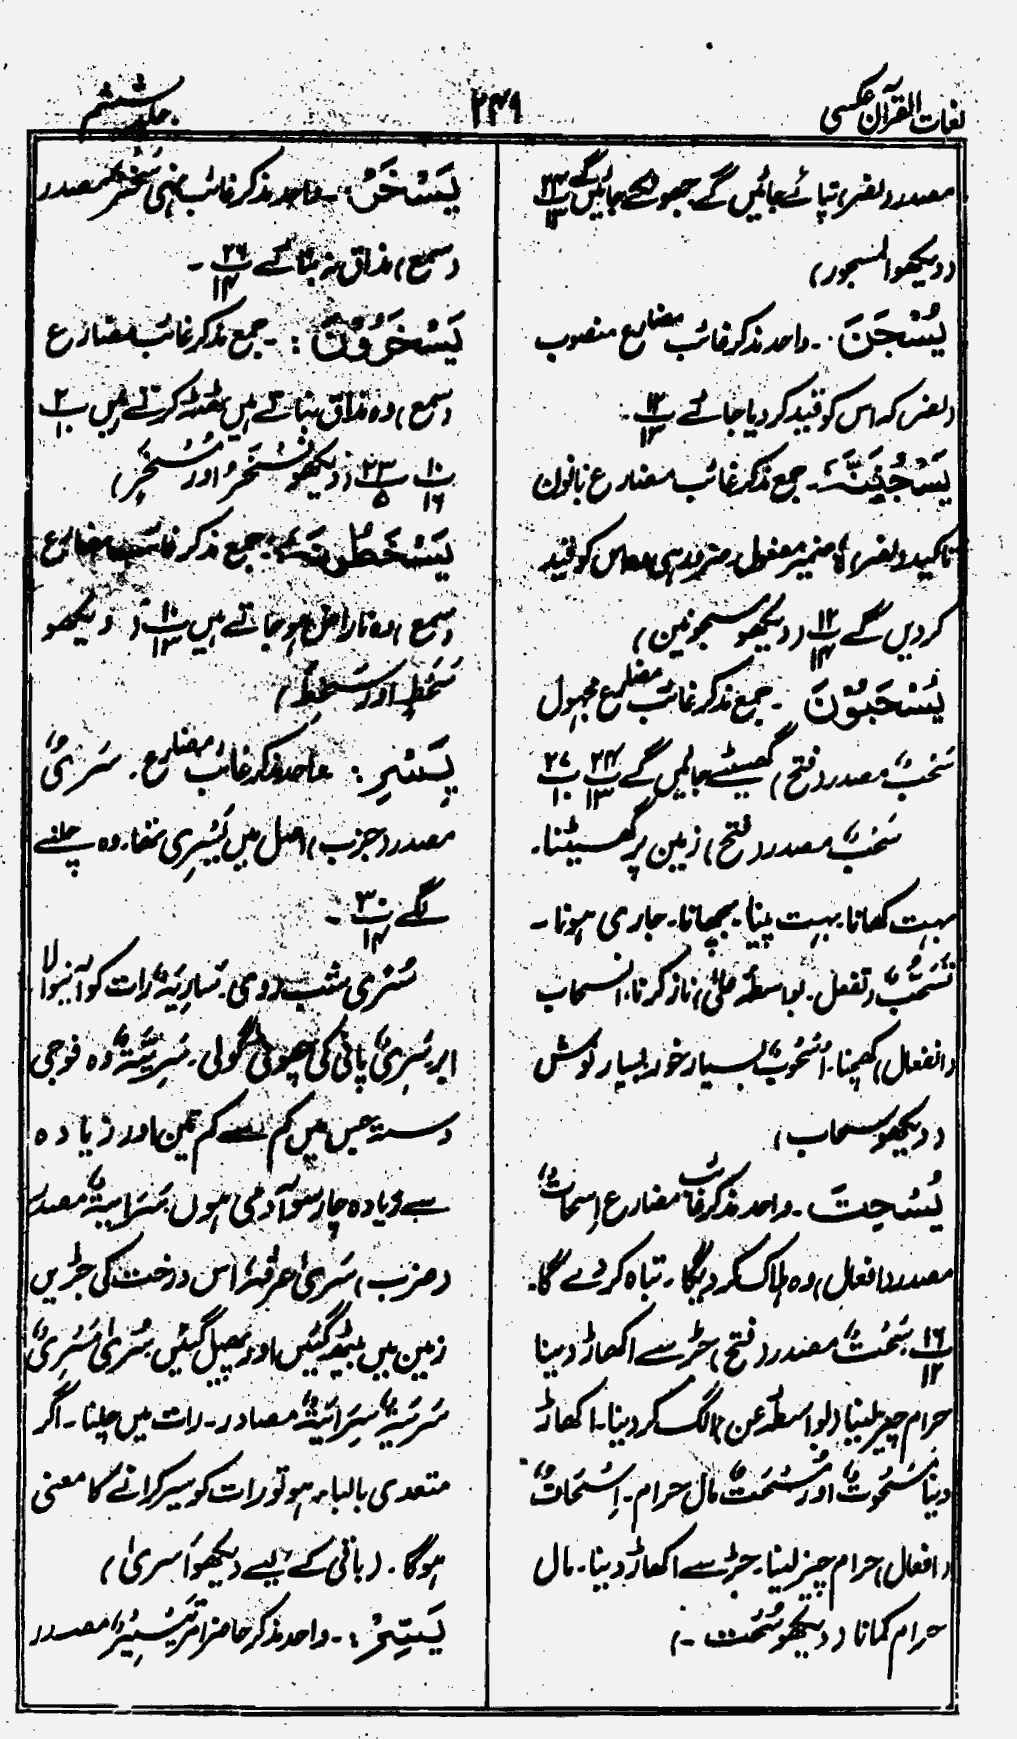 لغات القرآن عکسی
۲۴۹
جلد ششم
مصدر (ضر) تپائے جائیں گے جھونکے جائیں گے ۲۴/۱۳
(دیکھو المسجور)
یُسْجَنَ ۔ واحد مذکر غائب مضارع منصوب
(نصر) کہ اس کو قید کر دیا جائے ۱۲/۱۳
یَسْجُنَنَّہٗ ۔ جمع مذکر غائب مضارع بانون
تاکید (نصر) ہٗ ضمیر مفعول ۔ ضرور ہی وہ اس کو قید
کردیں گے ۱۲/۱۴ (دیکھو مسجونین)
یُسْحَبُوْنَ ۔ جمع مذکر غائب مضارع مجہول
سَحْبٌ مصدر (فتح) گھسیٹے جائیں گے ۲۴/۱۳ ۲۷/۱۰
سَحْبٌ مصدر (فتح) زمین پر گھسیٹنا۔
بہت کھانا بہت پینا۔ بچھانا۔ جاری ہونا ۔
تَسَحُّبٌ (تفعل۔ بواسطہ علیٰ) ناز کرنا، انسحاب
(انفعال) کھچنا۔ اُسْحُوْبٌ بسیار خور بسیار نوش
(دیکھو سحاب)
یُسْحِتَ ۔ واحد مذکر غائب مضارع اِسْحَاتٌ
مصدر (افعال) وہ ہلاک کر دیگا ۔ تباہ کر دے گا۔
۱۶/۱۲ سَحْتٌ مصدر (فتح) جڑ سے اکھاڑ دینا
حرام چیز لینا (بواسطہ عن) الگ کر دینا۔ اکھاڑ
دینا مَسْحُوْتٌ اور مُسْحَتٌ مال حرام ۔ اِسْحَاتٌ
(افعال) حرام چیز لینا۔ جڑ سے اکھاڑ دینا۔ مال
حرام کمانا (دیکھو سُحْت ۔)
یَسْخَرْ ۔ واحد مذکر غائب نہی سَخْرٌ مصدر
(سمع) مذاق نہ بنائے ۲۶/۱۴ ۔
یَسْخَرُوْنَ :۔ جمع مذکر غائب مضارع
(سمع) وہ مذاق بناتے ہیں ٹھٹھہ کرتے ہیں ۲/۱۰
۱۰/۱۶ ۲۳/۵ (دیکھو نَسْخَرُ اور سُخِرَ)
یَسْخَطُوْنَ :۔ جمع مذکر غائب مضارع
(سمع) وہ ناراض ہو جاتے ہیں ۱۰/۱۳ (دیکھو
سَخَطٍ اور سَخِطَ)
یَسْرِ :۔ واحد مذکر غائب مضارع ۔ سَرْیٌ
مصدر (ضرب) اصل میں یَسْرِیْ تھا۔ وہ چلنے
لگے ۳۰/۱۴ ۔
سُرْیٰ شب روی ۔ سَارِیَۃٌ رات کو آنیوالا
ابر سَرِیٌّ پانی کی چھوٹی گولی ۔ سَرِیَّۃٌ وہ فوجی
دستہ جس میں کم سے کم تین اور زیادہ
سے زیادہ چار سو آدمی ہوں سَرَایَۃٌ مصدر
(ضرب) سَرٰی عِرْقُہٗ اس درخت کی جڑیں
زمین میں بیٹھ گئیں اور پھیل گئیں سُرٰی مَسْرٰی
سَرْیَۃٌ سِرَایَۃٌ مصادر ۔ رات میں چلنا ۔ اگر
متعدی بالباء ہو تو رات کو سیر کرانے کا معنی
ہوگا ۔ (باقی کے لیے دیکھو اَسریٰ)
یَسِّرْ :۔ واحد مذکر حاضر امر تَیْسِیْرٌ مصدر